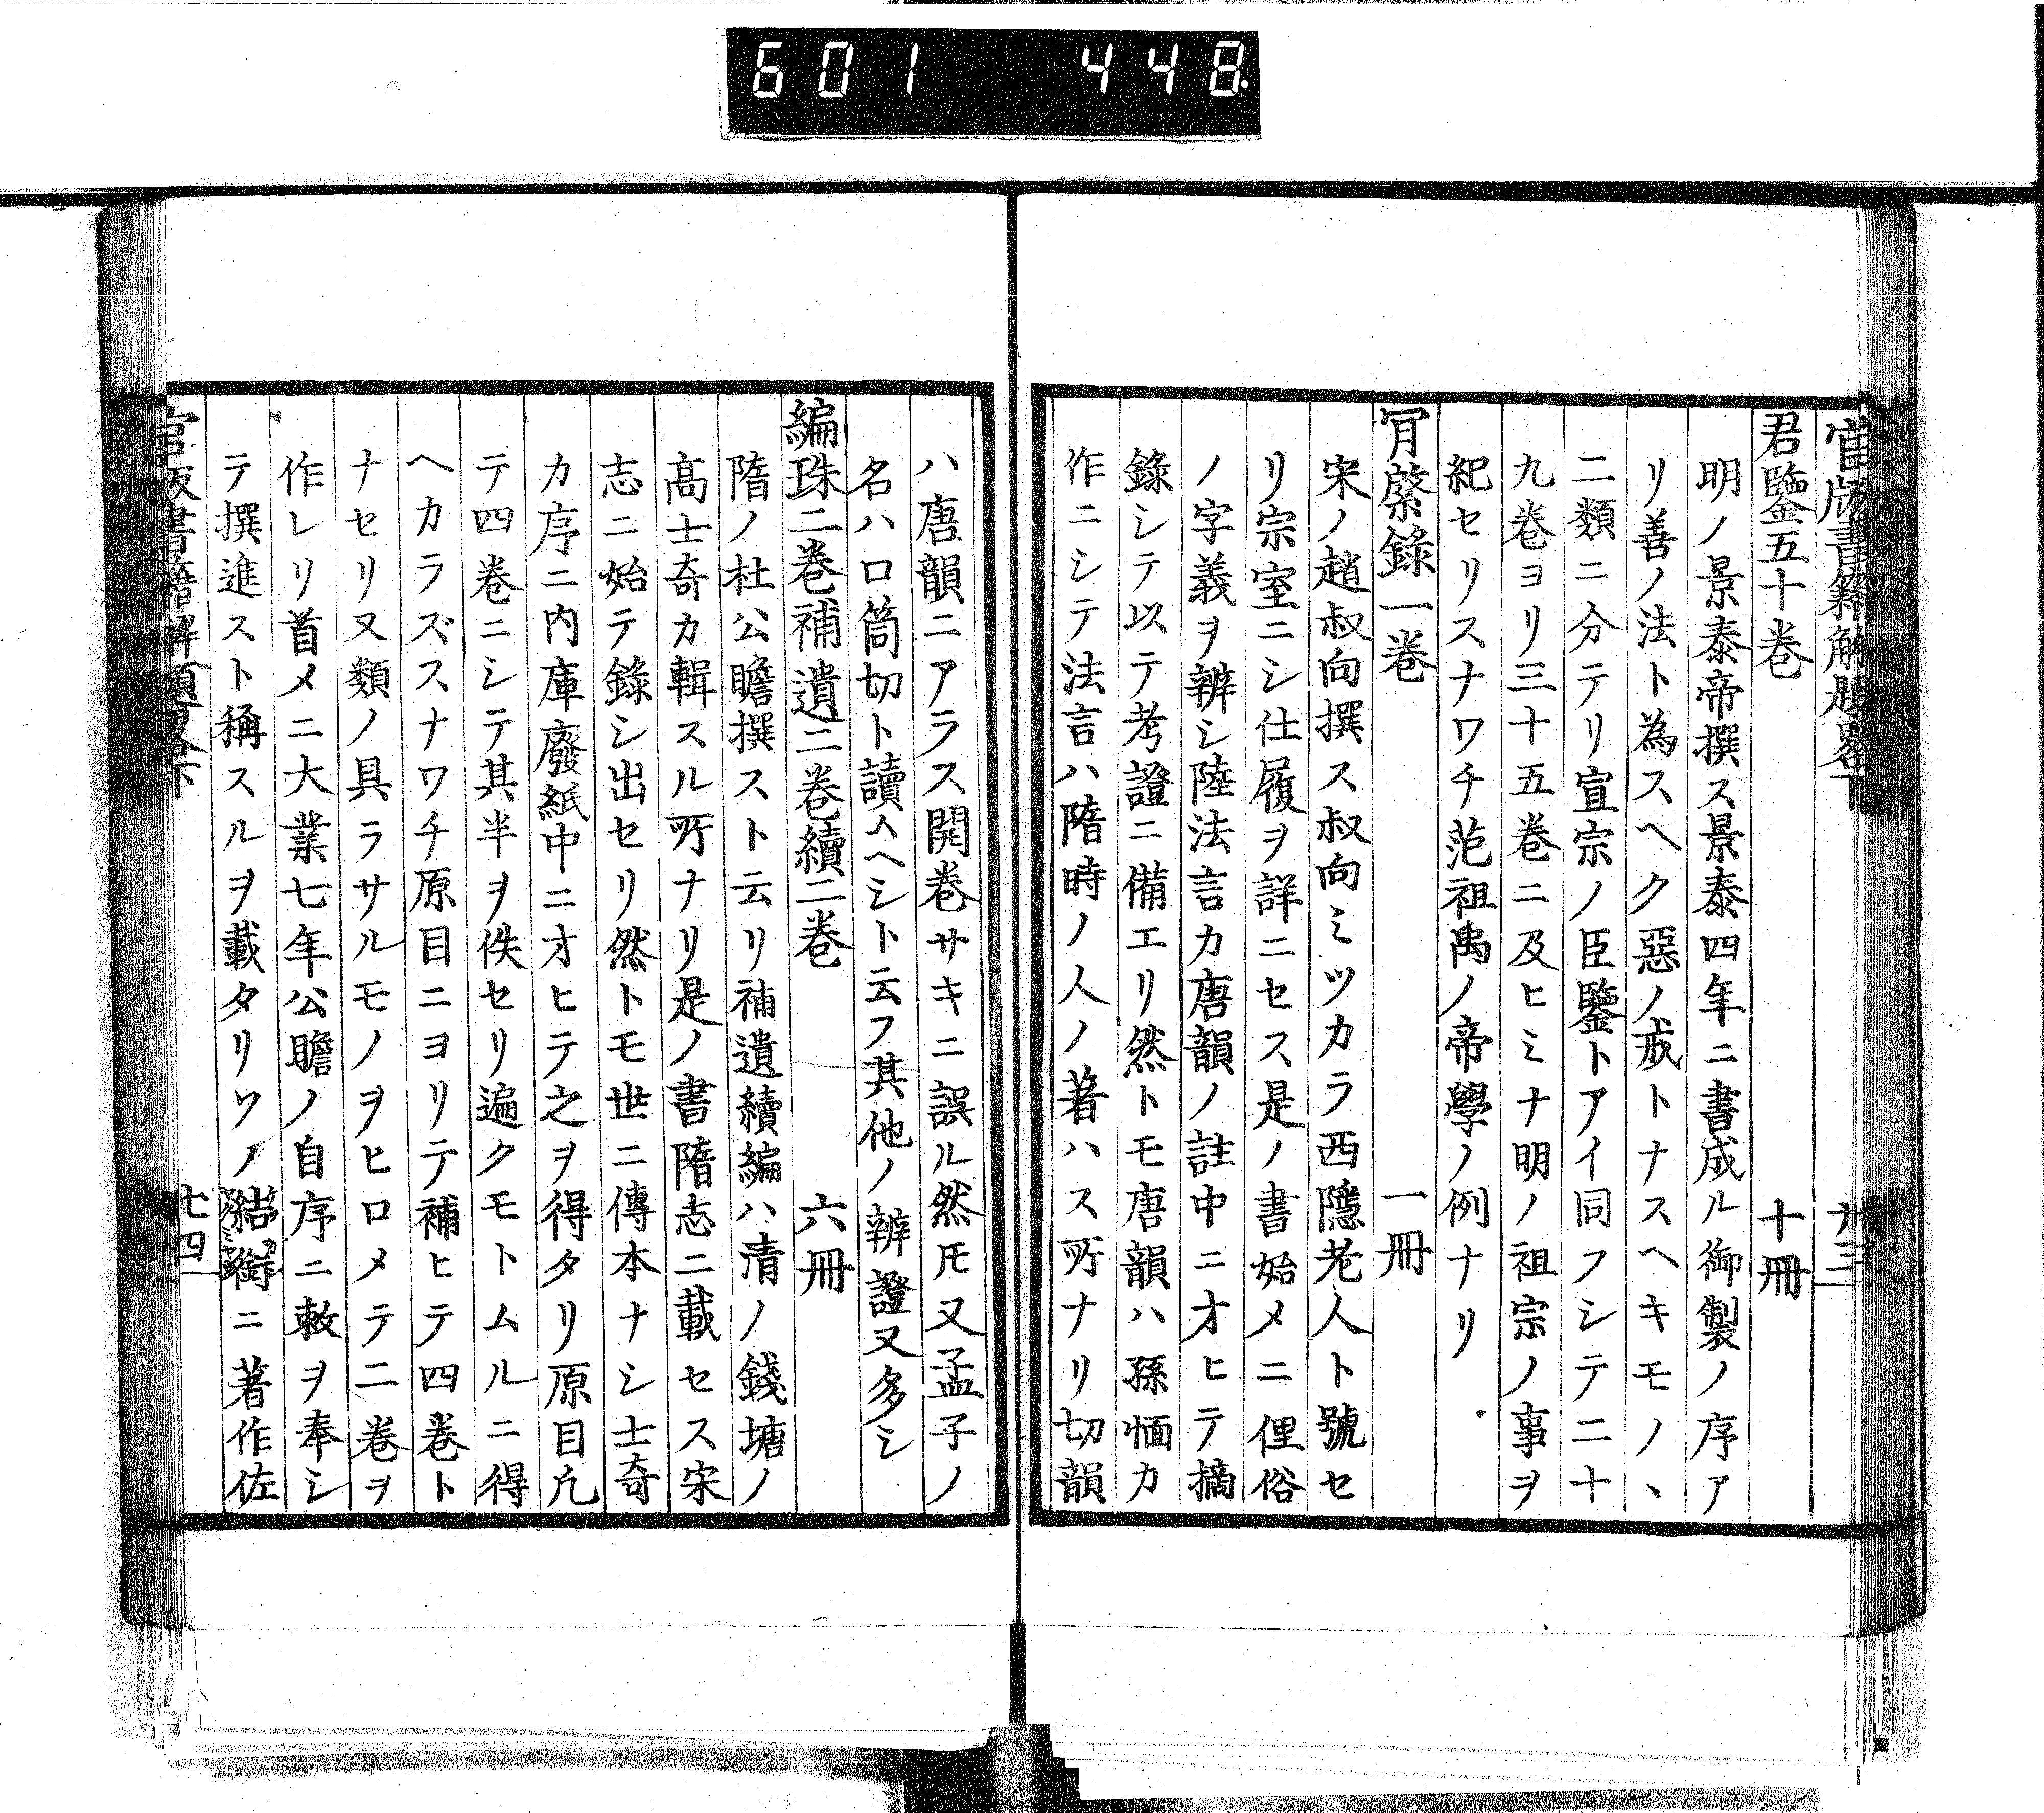 601 448
官版書籍解題畧下 廿三
君鑒五十巻 十冊
明ノ景泰帝撰ス景泰四年ニ書成ル御製ノ序ア
リ善ノ法ト為スヘク惡ノ戒トナスヘキモノヽ
二類ニ分テリ宣宗ノ臣鑒トアイ同フシテ二十
九巻ヨリ三十五巻ニ及ヒミナ明ノ祖宗ノ事ヲ
紀セリスナワチ范祖禹ノ帝學ノ例ナリ
肎綮錄一巻 一冊
宋ノ趙叔向撰ス叔向ミツカラ西隱老人ト號セ
リ宗室ニシ仕履ヲ詳ニセス是ノ書始メニ俚俗
ノ字義ヲ辨シ陸法言カ唐韻ノ註中ニオヒテ摘
錄シテ以テ考證ニ備エリ然トモ唐韻ハ孫愐カ
作ニシテ法言ハ隋時ノ人ノ著ハス所ナリ切韻
ハ唐韻ニアラス開巻サキニ誤ル然圧又孟子ノ
名ハ口筒切ト讀ムヘシト云フ其他ノ辨證又多シ
編珠二巻補遺二巻續二巻 六冊
隋ノ杜公瞻撰スト云リ補遺續編ハ清ノ錢塘ノ
髙士奇カ輯スル所ナリ是ノ書隋志ニ載セス宋
志ニ始テ錄シ出セリ然トモ世ニ傳本ナシ士奇
カ序ニ内庫廢紙中ニオヒテ之ヲ得タリ原目凢
テ四巻ニシテ其半ヲ佚セリ遍クモトムルニ得
ヘカラズスナワチ原目ニヨリテ補ヒテ四巻ト
ナセリ又類ノ具ラサルモノヲヒロメテ二巻ヲ
作レリ首メニ大業七年公瞻ノ自序ニ敕ヲ奉シ
テ撰進スト稱スルヲ載タリソノ結銜ニ著作佐
官版書籍解題畧下 七四